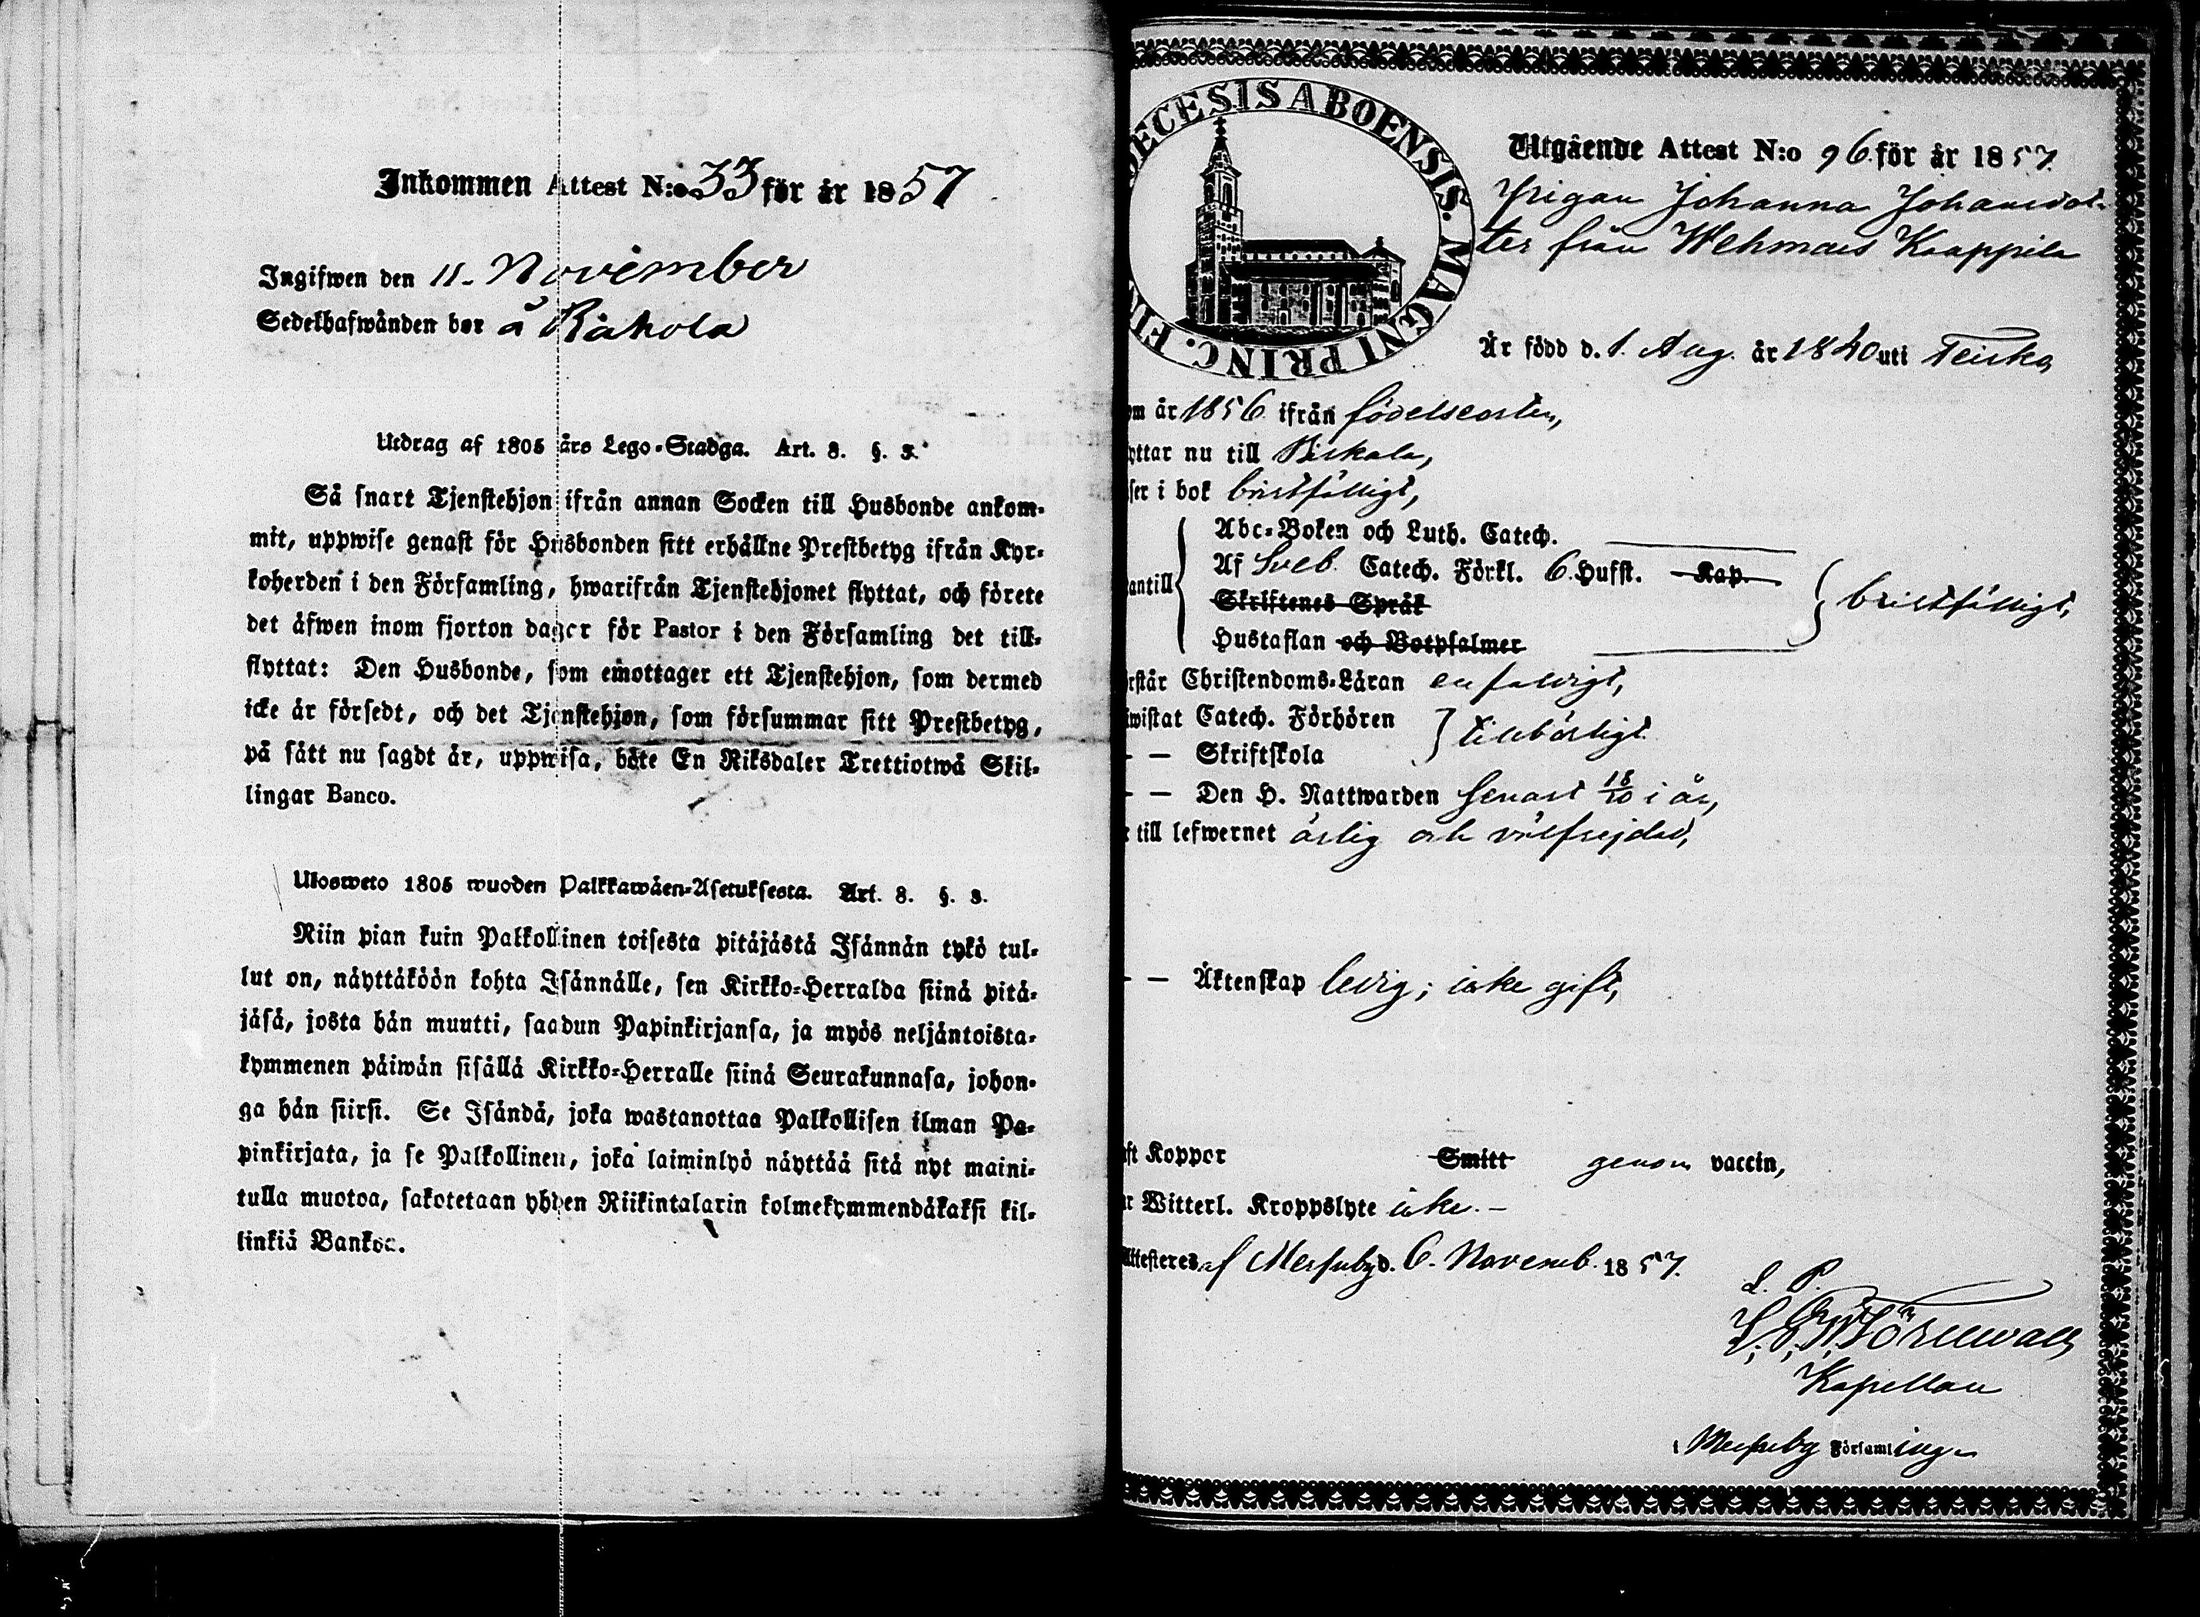 Inkommen Attest N:o 33 för år 1857
Ingifwen den 11. November
Sedelhafwanden bor å Rahola
Utdrag af 1805 års Lego-Stadga. Art. 8. §. 3.
Så snart Tjenstehjon ifrån annan Socken till Husbonde ankom-
mit, uppwise genast för Husbonden sitt erhållne Prestbetyg ifrån Kyr-
koherden i den Församling, hwarifrån Tjenstehjonet flyttat, och förete
det äfwen inom fjorton dagar för Pastor i den Församling det till-
flyttat: Den Husbonde, som emottager ett Tjenstehjon, som dermed
icke är försedt, och det Tjenstehjon, som försummar sitt Prestbetyg,
på sätt nu sagdt är, uppwisa, böte En Riksdaler Trettiotwå Skil-
lingar Banco.
Ulosweto 1805 wuoden Palkkawäen-Asetuksesta. Art. 8. §. 3.
Niin pian kuin Palkollinen toisesta pitäjästä Isännän tykö tul-
lut on, näyttäköön kohta Isännälle, sen Kirkko-Herralda siinä pitä-
jäsä, josta hän muutti, saadun Papinkirjansa, ja myös neljäntoista-
kymmenen päiwän sisällä Kirkko-Herralle siinä Seurakunnasa, johon-
ga hän siirsi. Se Isändä, joka wastanottaa Palkollisen ilman Pa-
pinkirjata, ja se Palkollinen, joka laiminlyö näyttää sitä nyt maini-
tulla muotoa, sakotetaan yhden Riikintalarin kolmekymmendäkaksi kil-
linkiä Bankoa.
DECESIS ABOENSIS. MAGNI PRINC. FIN
Utgående Attest N:o 96. för år 1857.
Pigan Johanna Johansdot-
ter från Wehmais Kaappila
Är född d. 1. Aug. år 1840 uti Teisko,
om år 1856 ifrån födelseorten,
yttar nu till Birkala,
ser i bok bristfälligt,
Abc-Boken och Luth. Catech.
Af Sveb. Catech. Förkl. 6. Hufst. Kap.
antill
Skriftenes Språk
bristfälligt,
Hustaflan och Botpsalmer
rstår Christendoms-Läran enfaldigt,
iwistat Catech. Förhören
tillbörligt
— Skriftskola
— — Den H. Nattwarden senast 18/10 i år,
till lefwernet ärlig och välfrejdad,
— — Äktenskap ledig; icke gift,
ft Koppor Smitt genom vaccin,
r Witterl. Kroppslyte icke.-
Attesteres af Messuby d. 6. Novemb. 1857.
L. P.
Kapellan
i Messuby Församling.